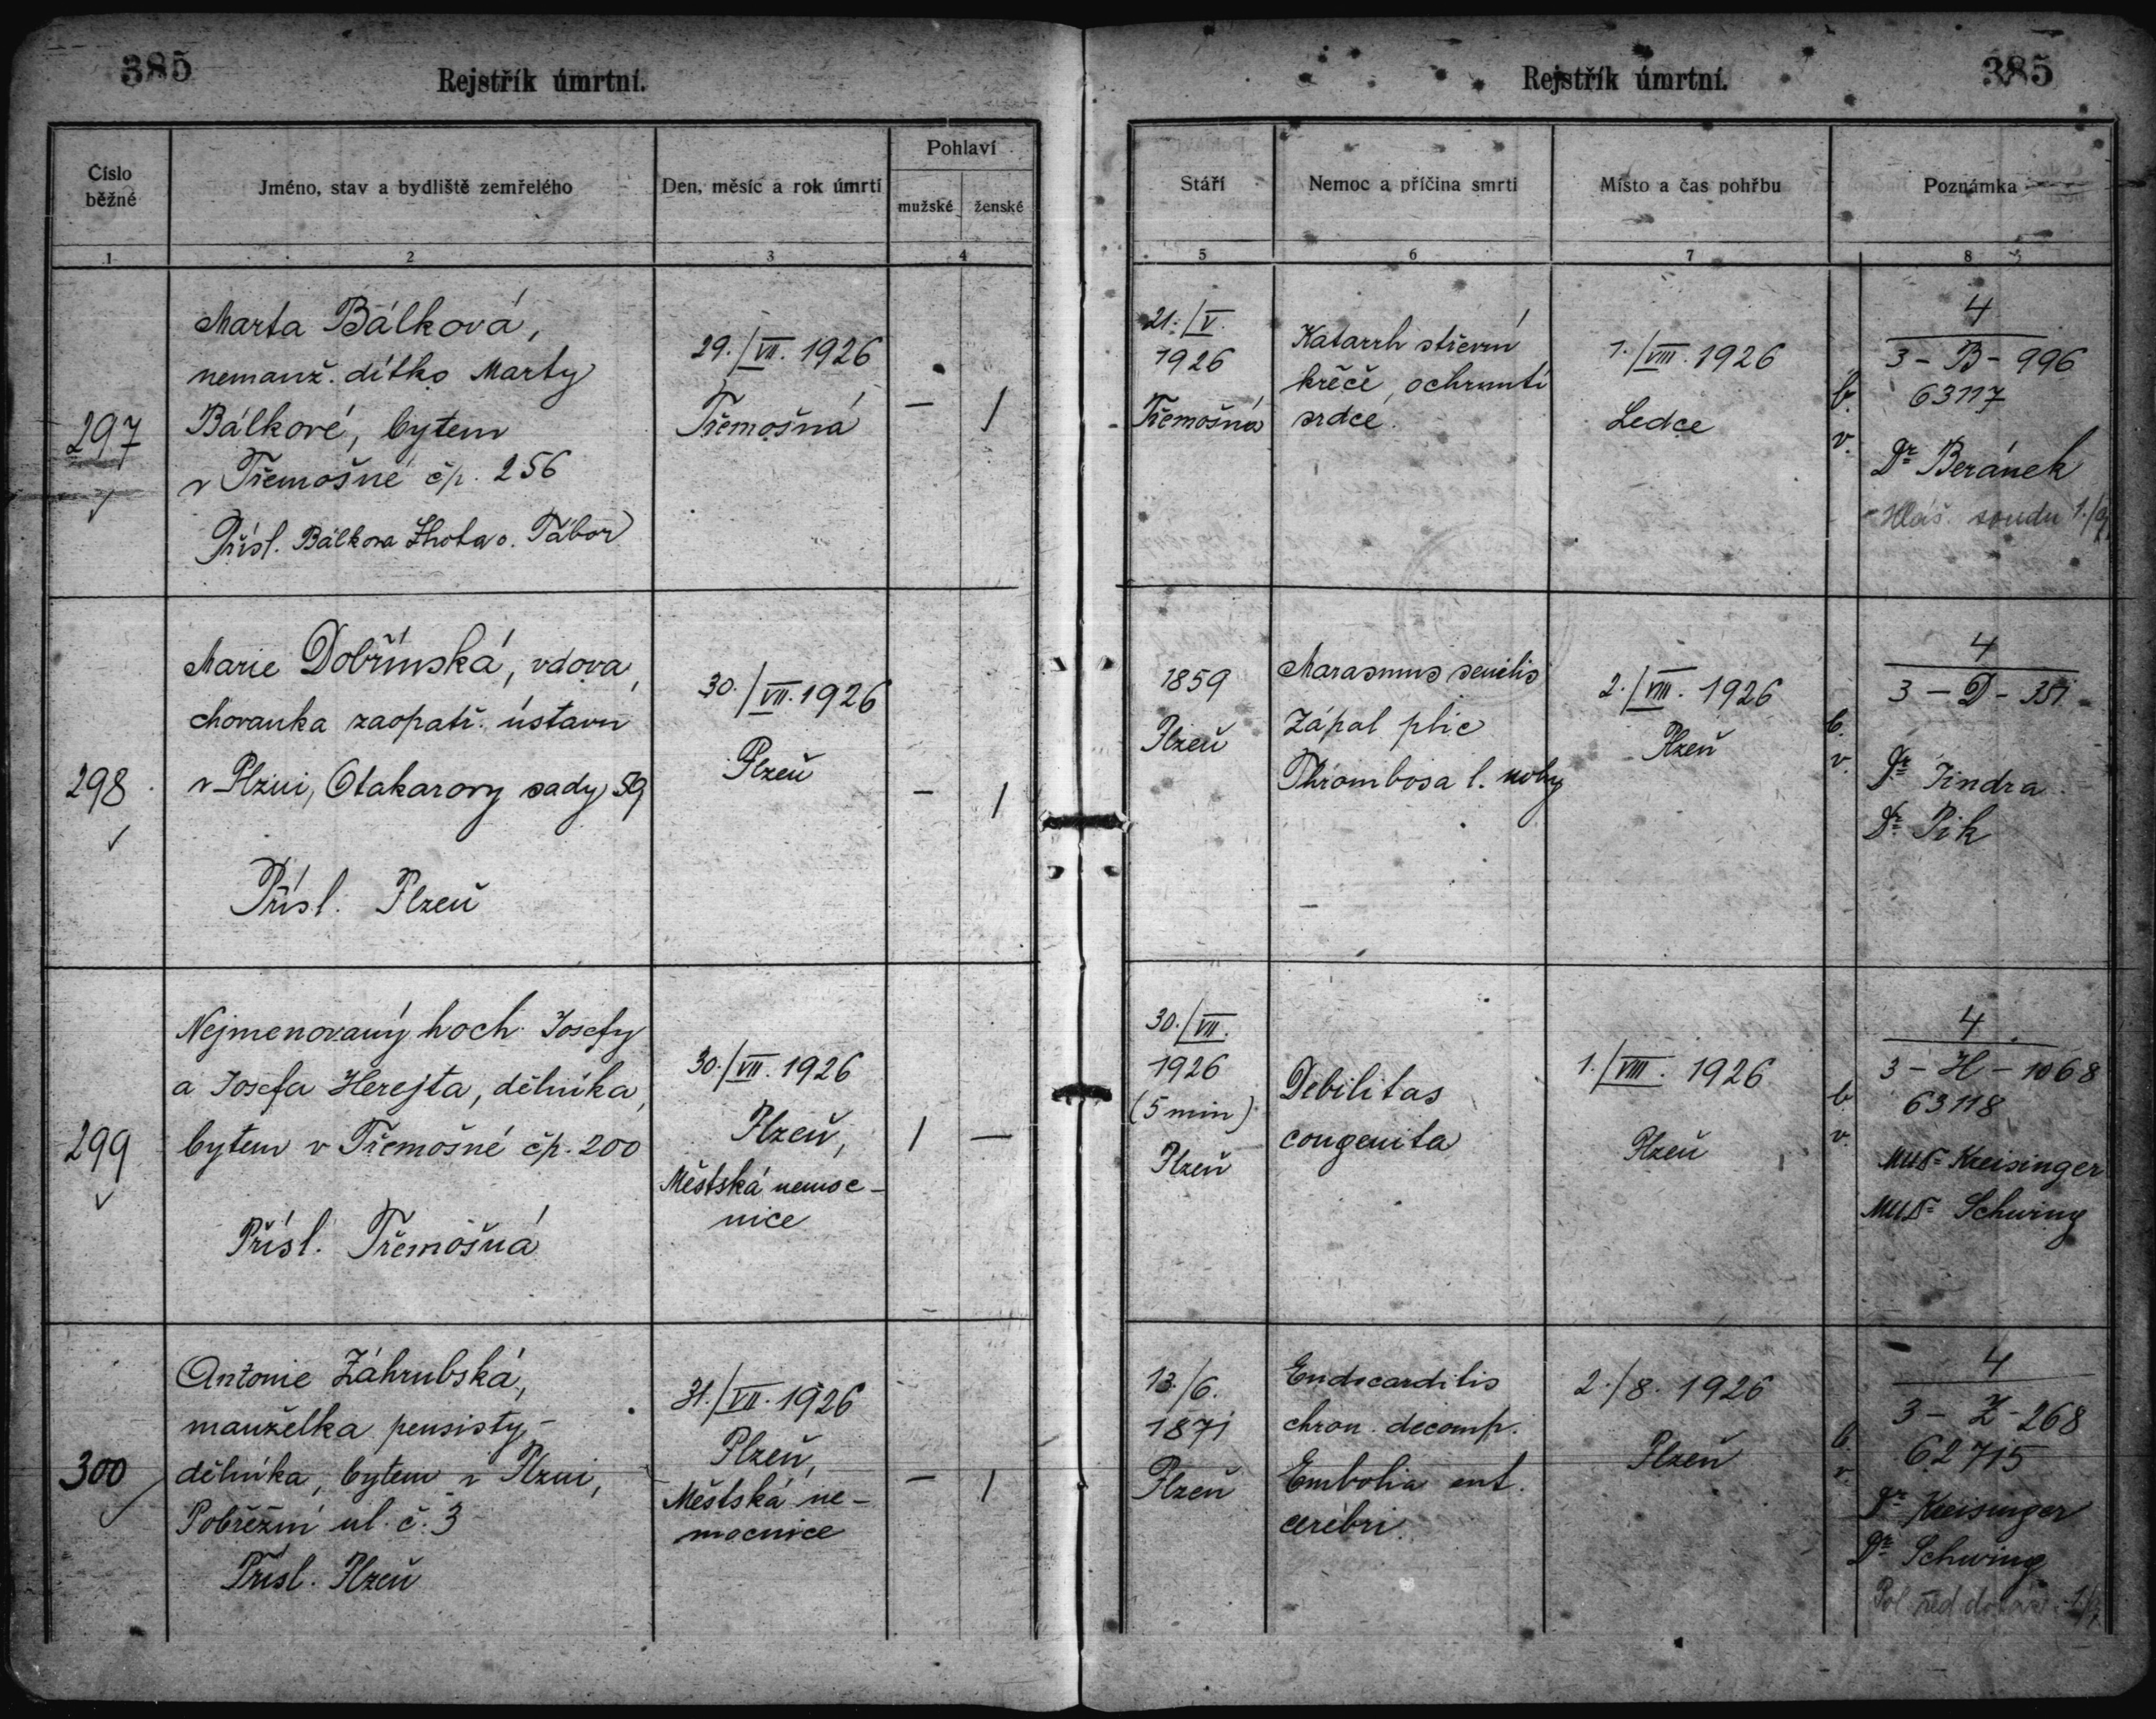 385
Rejstřík úmrtní.
Číslo běžné
Jméno, stav a bydliště zemřelého
Den, měsíc a rok úmrtí
Pohlaví
mužské
ženské
1
2
3
4
297
Marta Bálková,
nemanž. dítko Marty
Bálkové, bytem
v Třemošné čp. 256
Přísl. Bálkova Lhota o. Tábor
29./VII. 1926
Třemošná
—
1
298
Marie Dobřínská, vdova,
chovanka zaopatř. ústavu
v Plzni, Otakarovy sady 59
Přísl. Plzeň
30./VII. 1926
Plzeň
—
1
299
Nejmenovaný hoch Josefy
a Josefa Herejta, dělníka,
bytem v Třemošné čp. 200
Přísl. Třemošná
30./VII. 1926
Plzeň,
Městská nemoc-
nice
1
—
300
Antonie Záhrubská,
manželka pensisty-
dělníka, bytem v Plzni,
Pobřežní ul. č. 3
Přísl. Plzeň
31./VII. 1926
Plzeň,
Městská ne-
mocnice
—
1
385
Rejstřík úmrtní.
Stáří
Nemoc a příčina smrti
Místo a čas pohřbu
Poznámka
5
6
7
8
21./V.
1926
Třemošná
Katarrh střevní
křeče, ochrnutí
srdce.
1./VIII. 1926
Ledce
b.
v.
4
3 - B - 996
63117
Dr Beránek
Hláš. soudu
1859
Plzeň
Marasmus senilis
Zápal plic
Thrombosa l. nohy
2./VIII. 1926
Plzeň
b.
v.
4
3 - D - 351
Dr Jindra
Dr Pik
30./VII.
1926
(5 min)
Plzeň
Debilitas
congenita
1./VIII. 1926
Plzeň
b.
v.
4
3 - H - 1068
63118
MUDr Kreisinger
MUDr Schwing
13./6.
1871
Plzeň
Endocarditis
chron. decomp.
Embolia
cerebri.
2./8. 1926
Plzeň
b.
v.
4
3 - Z - 268
62715
Dr Kreisinger
Dr Schwing